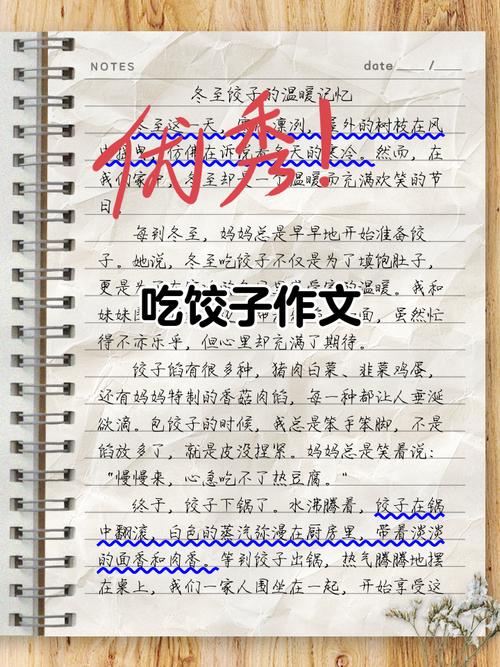 NOTES
date ___ /___
冬至饺子的温暖记忆
优秀!
冬至这一天，寒风凛冽，外的树枝在风
中摇曳，仿佛在诉说着冬天的寒冷。然而，在
我们家中，冬至却是一个温暖而充满欢笑的节
日
每到冬至，妈妈总是早早地开始准备饺
子。她说，冬至吃饺子不仅是为了填饱肚子，
更是为了在的温暖。我和
吃饺子作文
妹妹围面，虽然忙
得不亦乐乎，但心里却充满了期待。
饺子馅有很多种，猪肉白菜、韭菜鸡蛋，
还有妈妈特制的香菇肉馅，每一种都让人垂涎
欲滴。包饺子的时候，我总是笨手笨脚，不是
馅放多了，就是皮没捏紧。妈妈总是笑着说：
“慢慢来，心急吃不了热豆腐。”
终于，饺子下锅了。水沸腾着，饺子在锅
中翻滚，白色的蒸汽弥漫在厨房里，带着淡淡
的面香和肉香。等到饺子出锅，热气腾腾地摆
在桌上，我们一家人围坐在一起，开始享受这